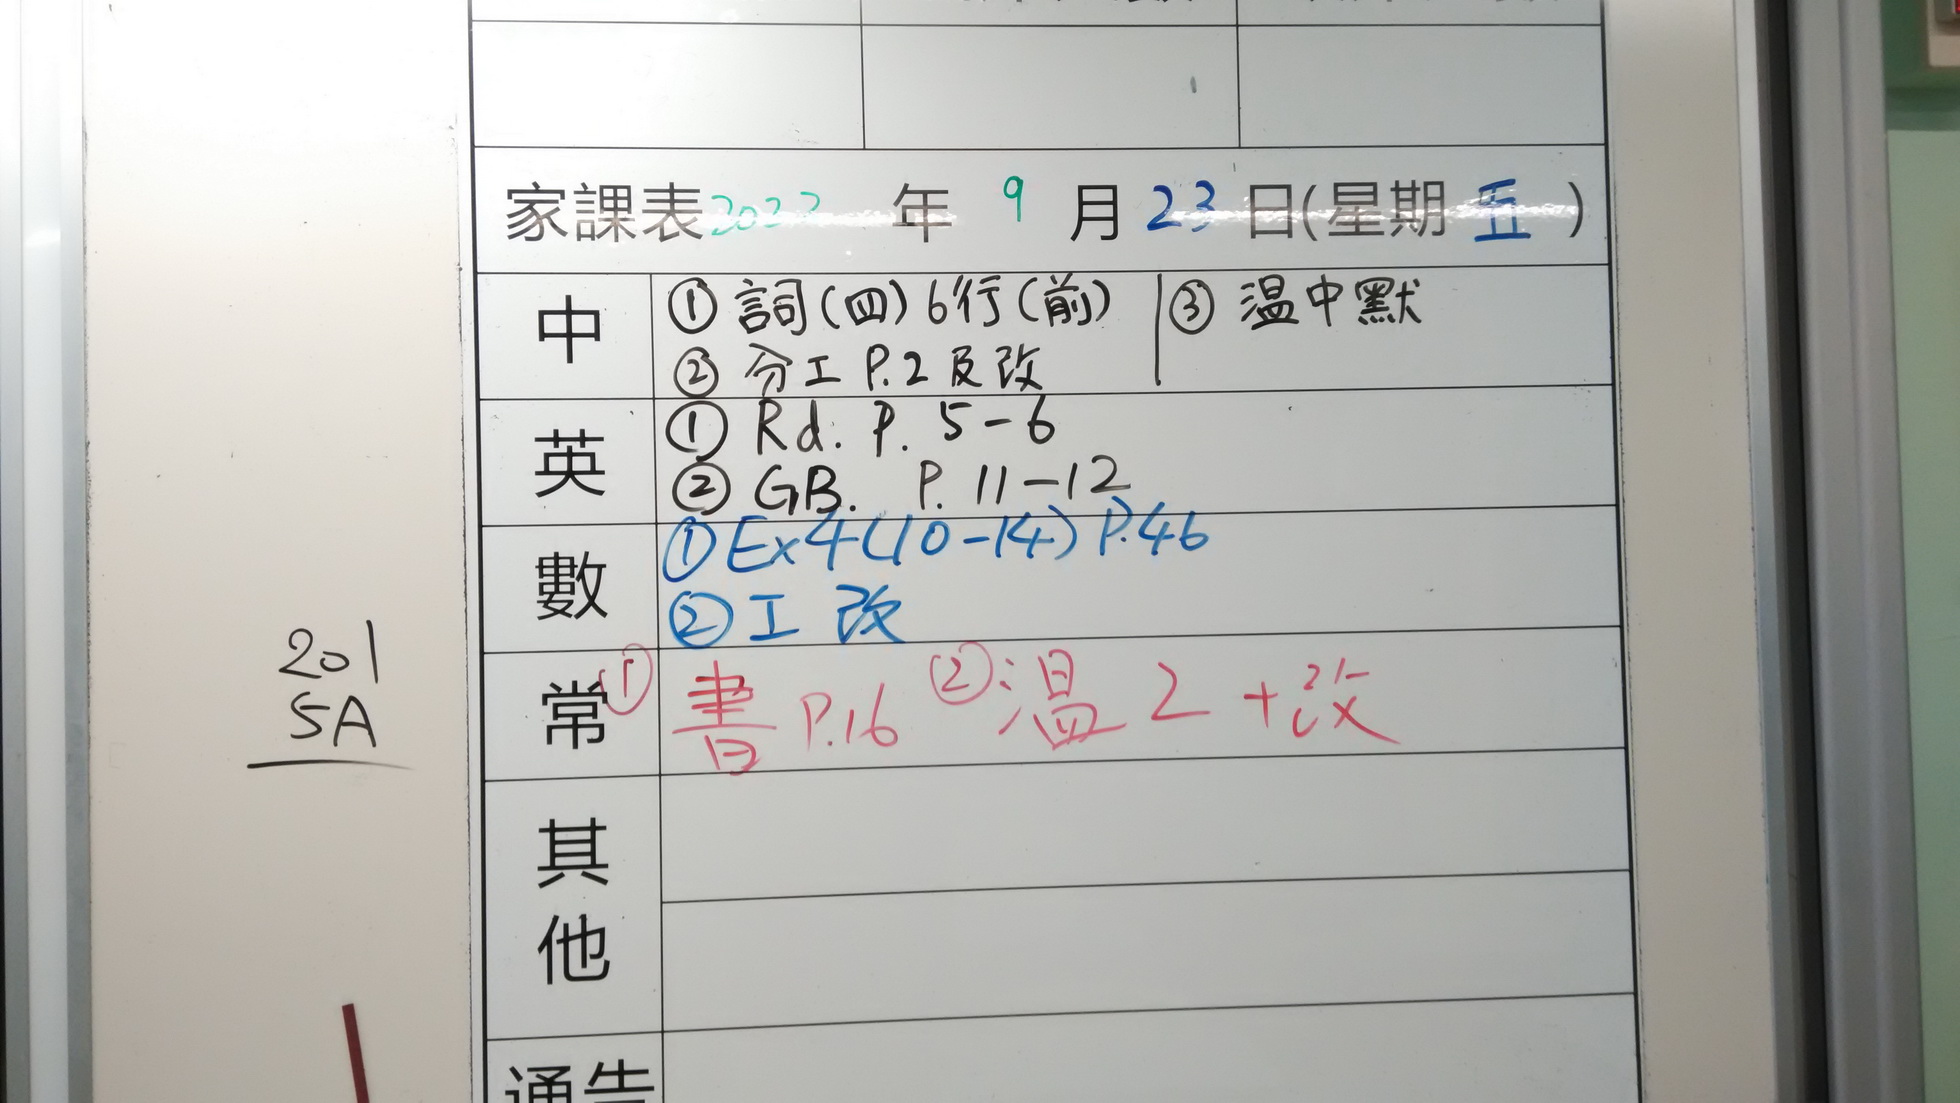 家課表 2022 年 9 月 23 日(星期 五 )
中
① 詞(四) 6行(前)
② 分工 P.2 及改
③ 温中默
英
① Rd. P. 5-6
② GB. P. 11-12
數
① Ex4(10-14) P.46
② 工 改
常
① 書 P.16 ② 温 2 + 改
201
5A
其
他
通告